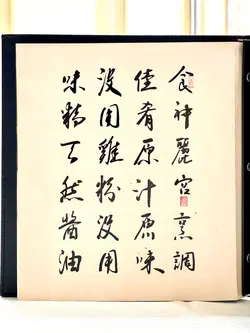 食神麗宮烹調
佳肴原汁原味
沒用雞粉沒用
味精天然醬油